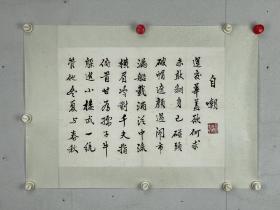 自嘲
運交華蓋欲何求
未敢翻身已碰頭
破帽遮顏過鬧市
漏船載酒泛中流
橫眉冷對千夫指
俯首甘為孺子牛
躲進小樓成一統
管他冬夏与春秋